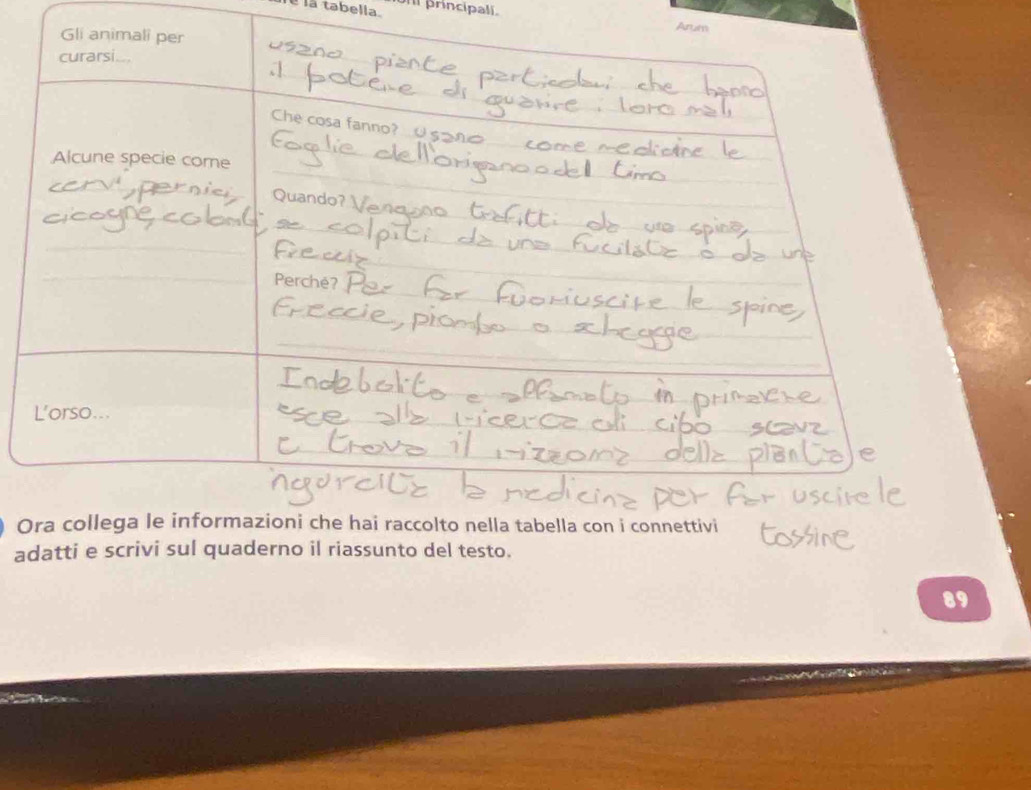 la tabella.
principali.
Arum
Gli animali per
curarsi...
usano piante particolari che hanno
il potere di guarire i loro mali
Alcune specie come
cervi, pernici,
cicogne, colombi,
Che cosa fanno? Usano come medicine le
foglie dell'origano o del timo
Quando? Vengono trafitti da una spina,
colpiti da una fucilata o da una
Perché? Per far fuoriuscire le spine,
freccie, piombo o schegge
L'orso...
Indebolito e affamato in primavera
esce alla ricerca di cibo scava
e trova il rizzoma della pianta e
la medicina per far uscire le
tossine
Ora collega le informazioni che hai raccolto nella tabella con i connettivi
adatti e scrivi sul quaderno il riassunto del testo.
89